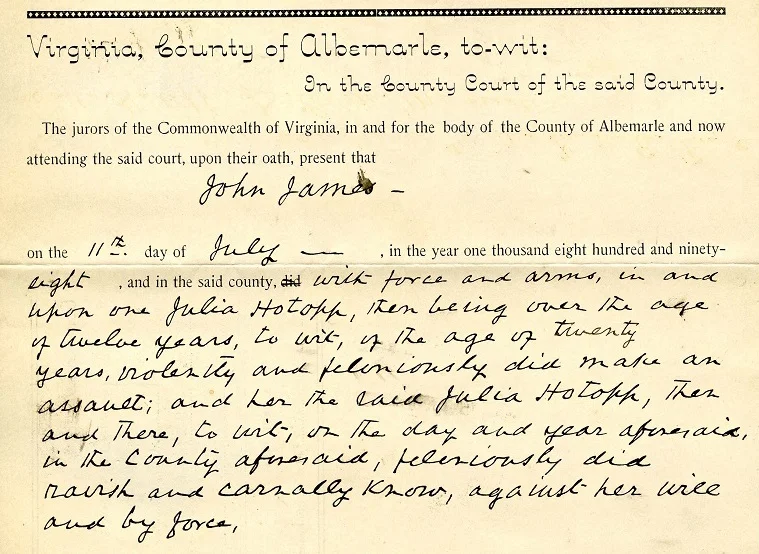 Virginia, County of Albemarle, to-wit:
In the County Court of the said County.
The jurors of the Commonwealth of Virginia, in and for the body of the County of Albemarle and now
attending the said court, upon their oath, present that
John James –
on the 11th. day of July — , in the year one thousand eight hundred and ninety-
eight , and in the said county, did with force and arms, in and
upon one Julia Hotopp, then being over the age
of twelve years, to wit, of the age of twenty
years, violently and feloniously did make an
assault; and her the said Julia Hotopp, then
and there, to wit, on the day and year aforesaid,
in the County aforesaid, feloniously did
ravish and carnally know, against her will
and by force,